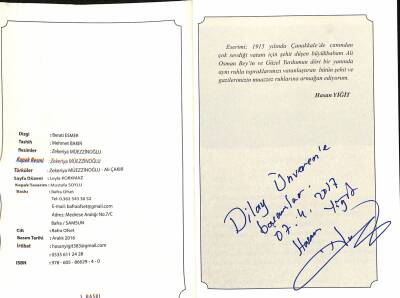 Dizgi : Berati ESMER
Tashih : Mehmet BAKIR
Resimler : Zekeriya MÜEZZİNOĞLU
Kapak Resmi : Zekeriya MÜEZZİNOĞLU
Türküler : Zekeriya MÜEZZİNOĞLU - Ali ÇAKIR
Sayfa Düzeni : Leyla KORKMAZ
Kapak Tasarım : Mustafa SOYLU
Baskı : Bafra Ofset
Tel: 0.362 543 50 52
E-mail: bafraofset@gmail.com
Adres: Medrese Aralığı No:7/C
Bafra / SAMSUN
Cilt : Bafra Ofset
Basım Tarihi : Aralık 2016
İrtibat : hasanyigit383@gmail.com
: 0535 611 24 28
ISBN : 978 - 605 - 66629 - 4 - 0
2. BASKI
Eserimi: 1915 yılında Çanakkale'de canından
çok sevdiği vatanı için şehit düşen büyükbabam Ali
Osman Bey'in ve Güzel Yurdumun dört bir yanında
aynı ruhla topraklarımızı vatanlaştıran bütün şehit ve
gazilerimizin muazzez ruhlarına armağan ediyorum.
Hasan YİĞİT
Dilay Ünveren'e
başarılar.
07.4.2017
Hasan Yiğit